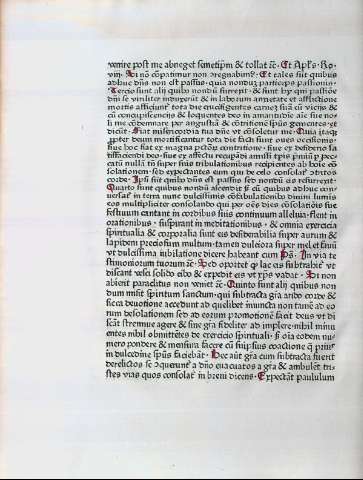 venire post me abneget semetipm & tollat &c. Et Apls. Ro.
viij. Si nō cōpatimur non ꝯregnabim9. Et tales sūt quibus
adhuc dn̄s non est passus. quia nondum participes passionis.
Tercio sunt alij quibꝰ nondū surrexit. & sunt hij qui passiōe
dn̄i se viriliter induerūt & in laborum anxietate et afflictione
mortis afficiunt tota die crucifigentes carnem suā cū vicijs &
cū concupiscencijs & loquentes deo in amaritudie aīe sue noli
me condemnare per angustiā & cōtritionē spūs gementes. et
dicūt. Fiat misericordia tua dn̄e vt cōsoletur me. Quia itaqꝫ
ꝓpter deum mortificantur tota die facti sunt oues occisionis.
siue hoc fiat ex magna pctōꝝ contritione. siue ex desiderio sa
tisfaciendi deo. siue ex affectu recuperādi
nullā tn̄ super hijs tribulationibus recipientes ab hoīe con
solationem. sed expectantes eum qui de celo consolat' ꝯtritos
corde. Ipsi sūt quibꝰ dn̄s est passus sed nondū eis resurrexit.
Quarto sunt quibus nondū ascendit sꝫ cū quibus adhuc con-
versat' in terra nunc dulcissimis cōfabulationibꝰ diuini luminis
eos multipliciter consolando qui per oēs dies cōsolatiōis sue
festiuum cantant in cordibus suis continuum alleluia. flent in
orationibus. suspirant in meditationibus. & omnia exercicia
spiritualia & corporalia sunt eis desiderabilia super aurum &
lapidem preciosum multum. tamen dulciora super mel et fauū
vt dulcissima iubilatione dicere habeant cum Ps. In via te
stimoniorum tuorum &c. Sed oportet qꝫ lac eis subtrahat' vt
discant vesci solido cibo & expedit eis vt xps̄ vadat. Si non
abierit paraclitus non veniet &c. Quinto sunt alij quibus non
dum misit spiritum sanctum. qui subtracta gr̄a arido corde &
sicca deuotione accedunt ad quelibet inuncta non tamē ad eo
rum desolationem sed ad eorum promotionē facit deus vt di
scāt strennue agere & sine gr̄a fideliter adimplere. nihil minu
entes nihil obmittētes de exercicio spirituali. sꝫ oīa eodem nu-
mero pondere & mensura facere cū suijpsius coactione q̄ prius
in dulcedine spūs faciebāt. Hec aūt gr̄a cum subtracta fuerit
derelictos se ꝯquerunt' a dn̄o euacuatos a gr̄a & ambulēt tri-
stes vias quos consolat' in breui dicens. Expectāt paululum